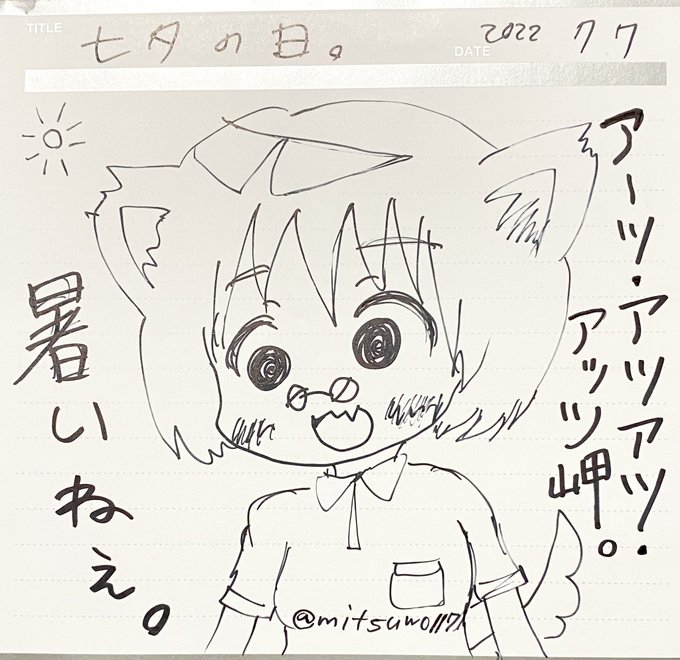 TITLE
七夕の日。
DATE
2022 7 7
アーツ・アツアツ・
アッツ岬。
暑いねぇ。
@mitsuwo117